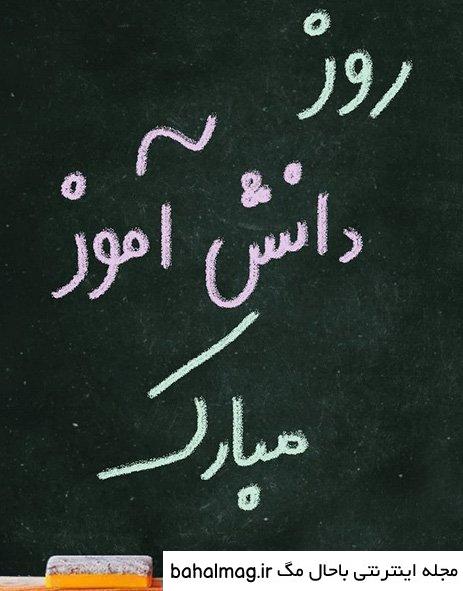 روز
دانش آموز
مبارک
مجله اینترنتی باحال مگ bahalmag.ir